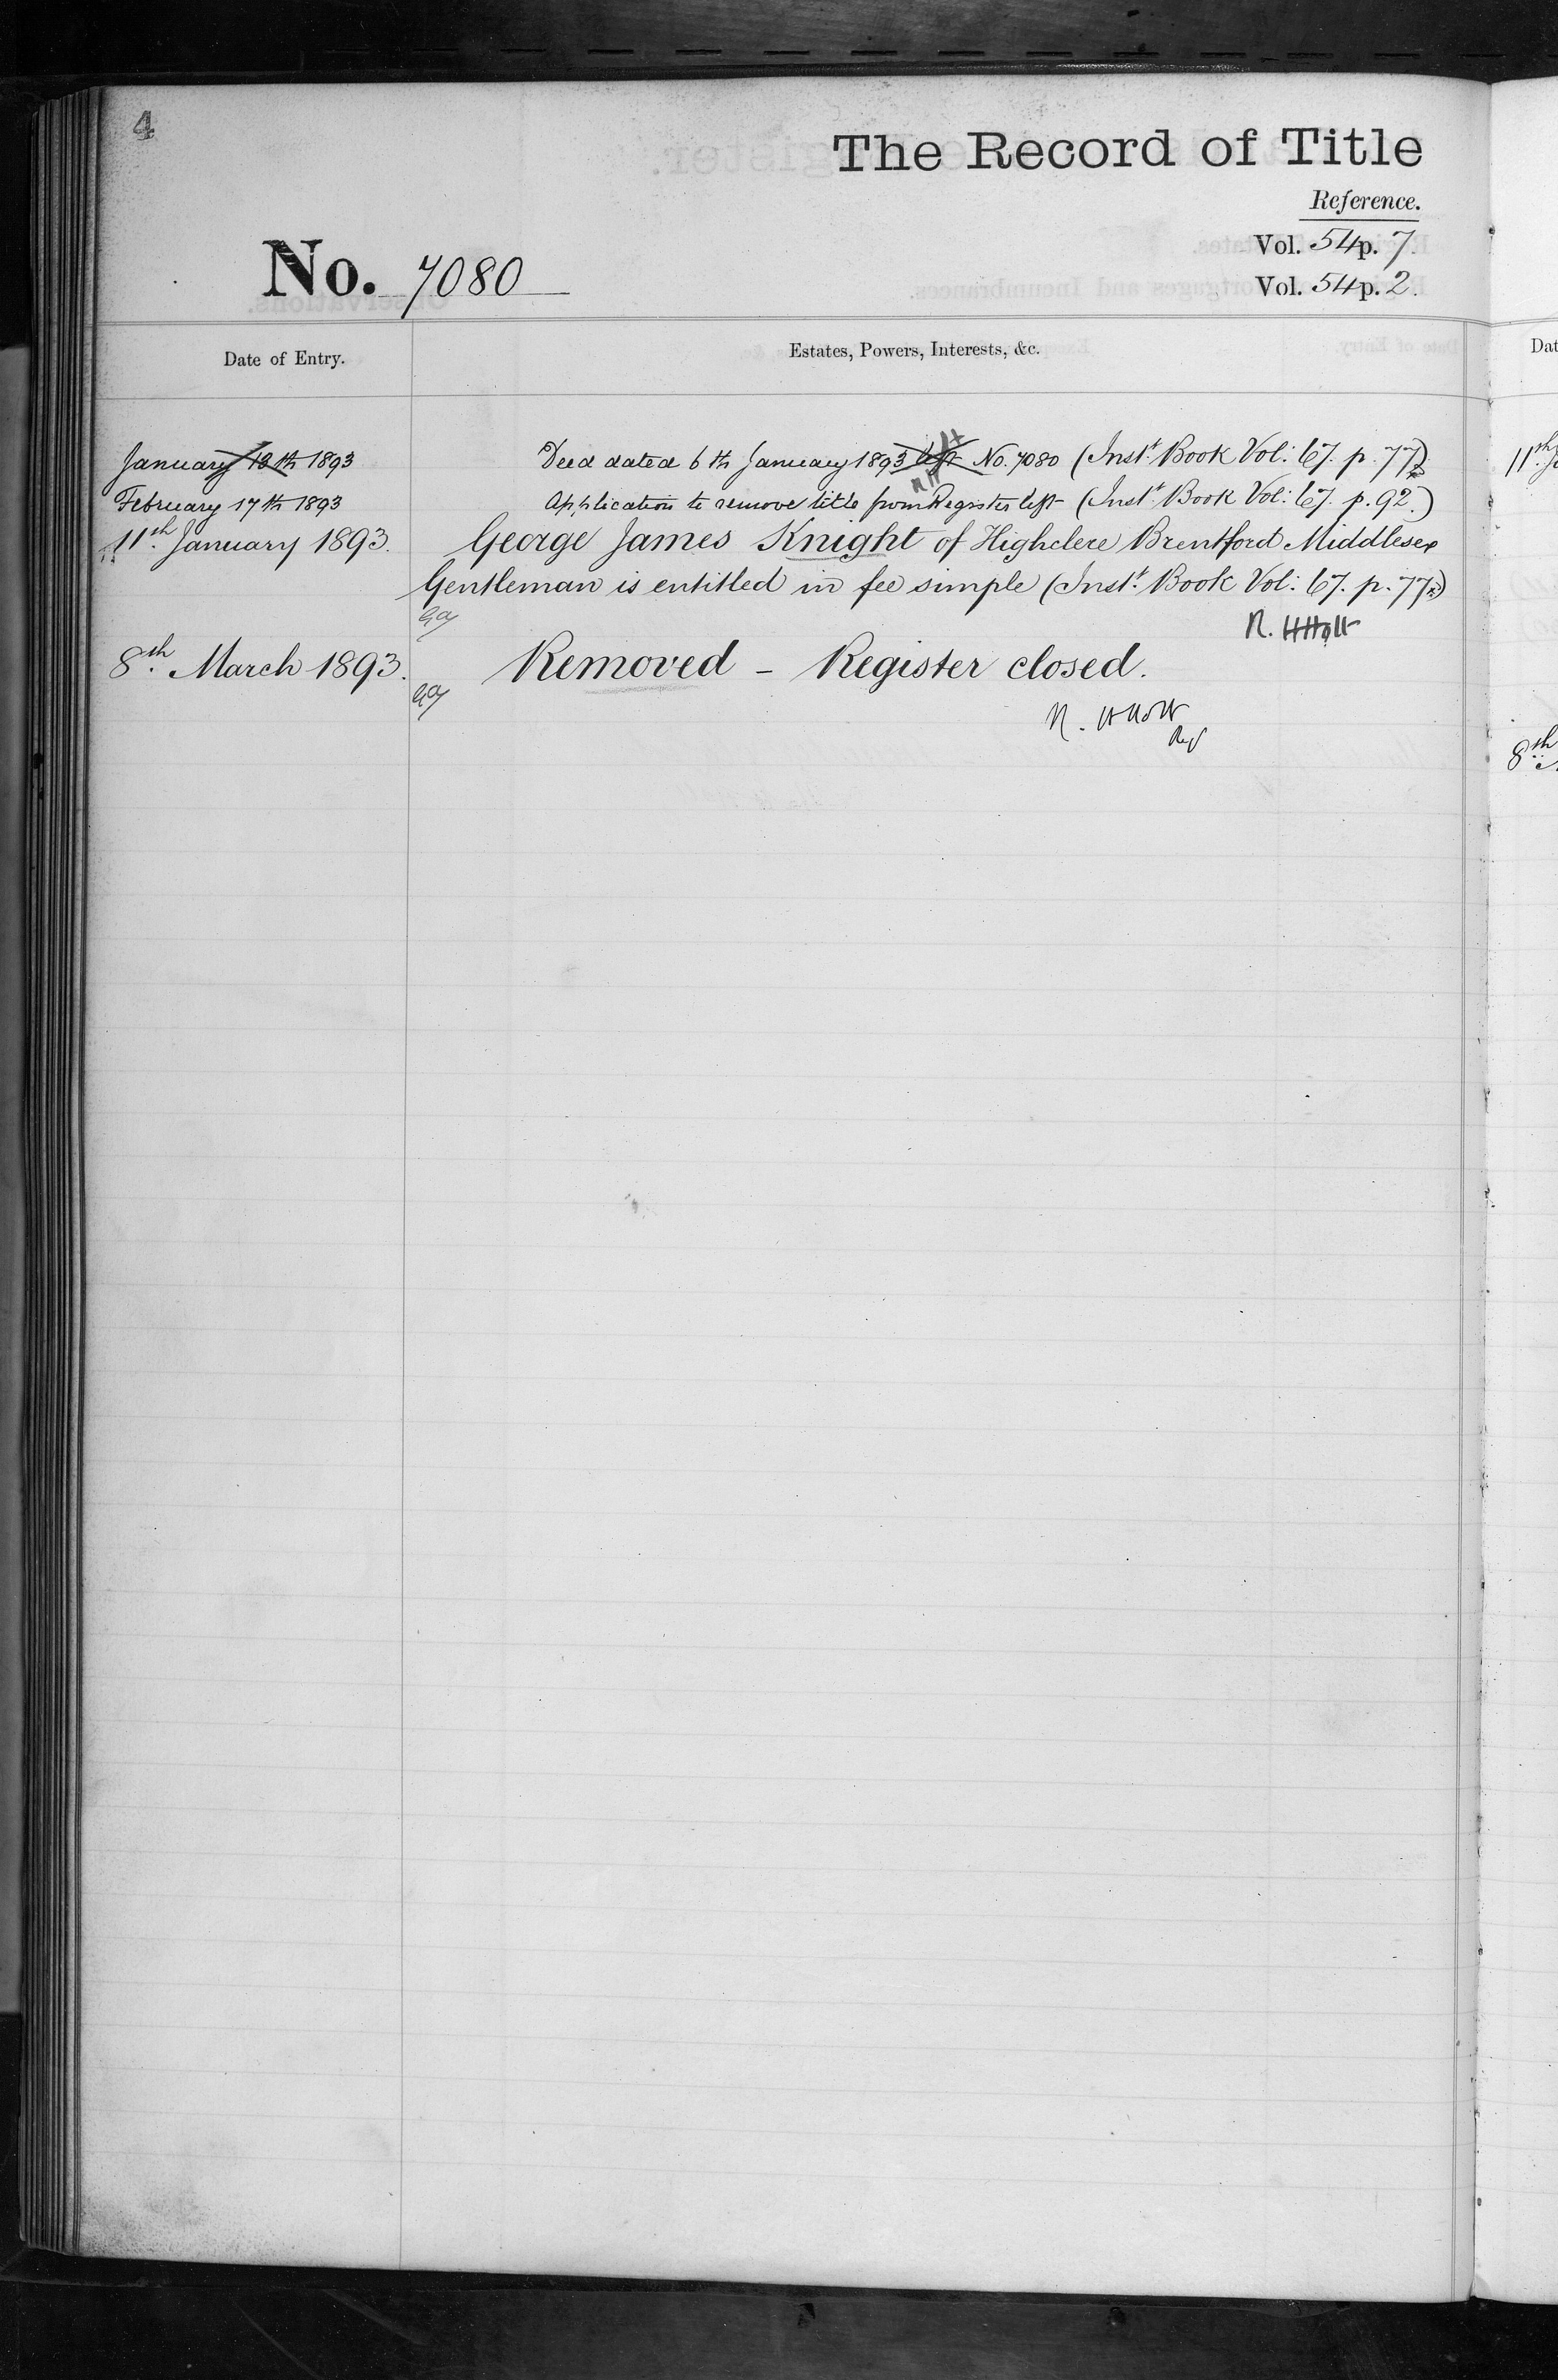 4
The Record of Title
Reference.
Vol. 54 p. 7.
No. 7080
Vol. 54 p. 2.
Date of Entry.
Estates, Powers, Interests, &c.
Dat
January 10th 1893 Deed dated 6th January 1893 left No. 7080 (Inst.t Book Vol: 67. p. 77)
11th J
February 17th 1893 Application to remove title from Register left (Inst.t Book Vol: 67. p. 92.)
11th January 1893. George James Knight of Highclere Brentford Middlesex
Gentleman is entitled in fee simple (Inst.t Book Vol: 67. p. 77)
R. H Holt
8th March 1893. Removed – Register closed.
R. H Holt
Reg
8th